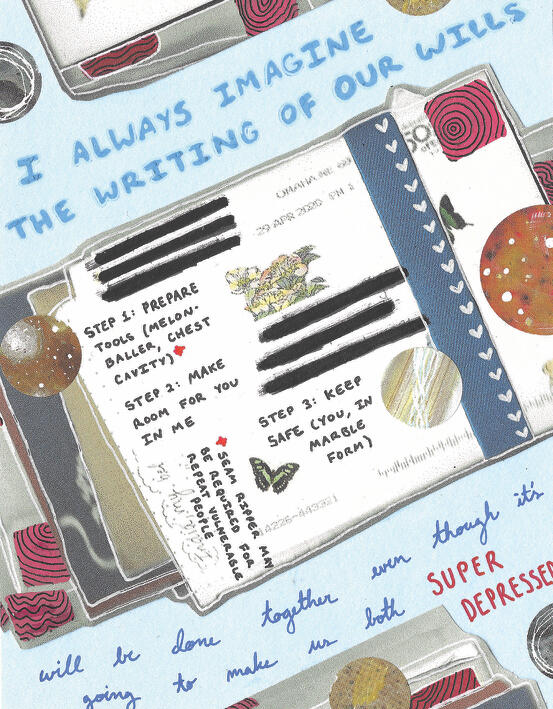 I ALWAYS IMAGINE
THE WRITING OF OUR WILLS
OMAHA NE 68
29 APR 2020 PM 1
STEP 1: PREPARE
TOOLS (MELON-
BALLER, CHEST
CAVITY)
STEP 2: MAKE
ROOM FOR YOU
IN ME
SEAM RIPPER MAY
BE REQUIRED FOR
REPEAT VULNERABLE
PEOPLE
STEP 3: KEEP
SAFE (YOU, IN
MARBLE
FORM)
will be done together even though it's
going to make us both SUPER
DEPRESSED